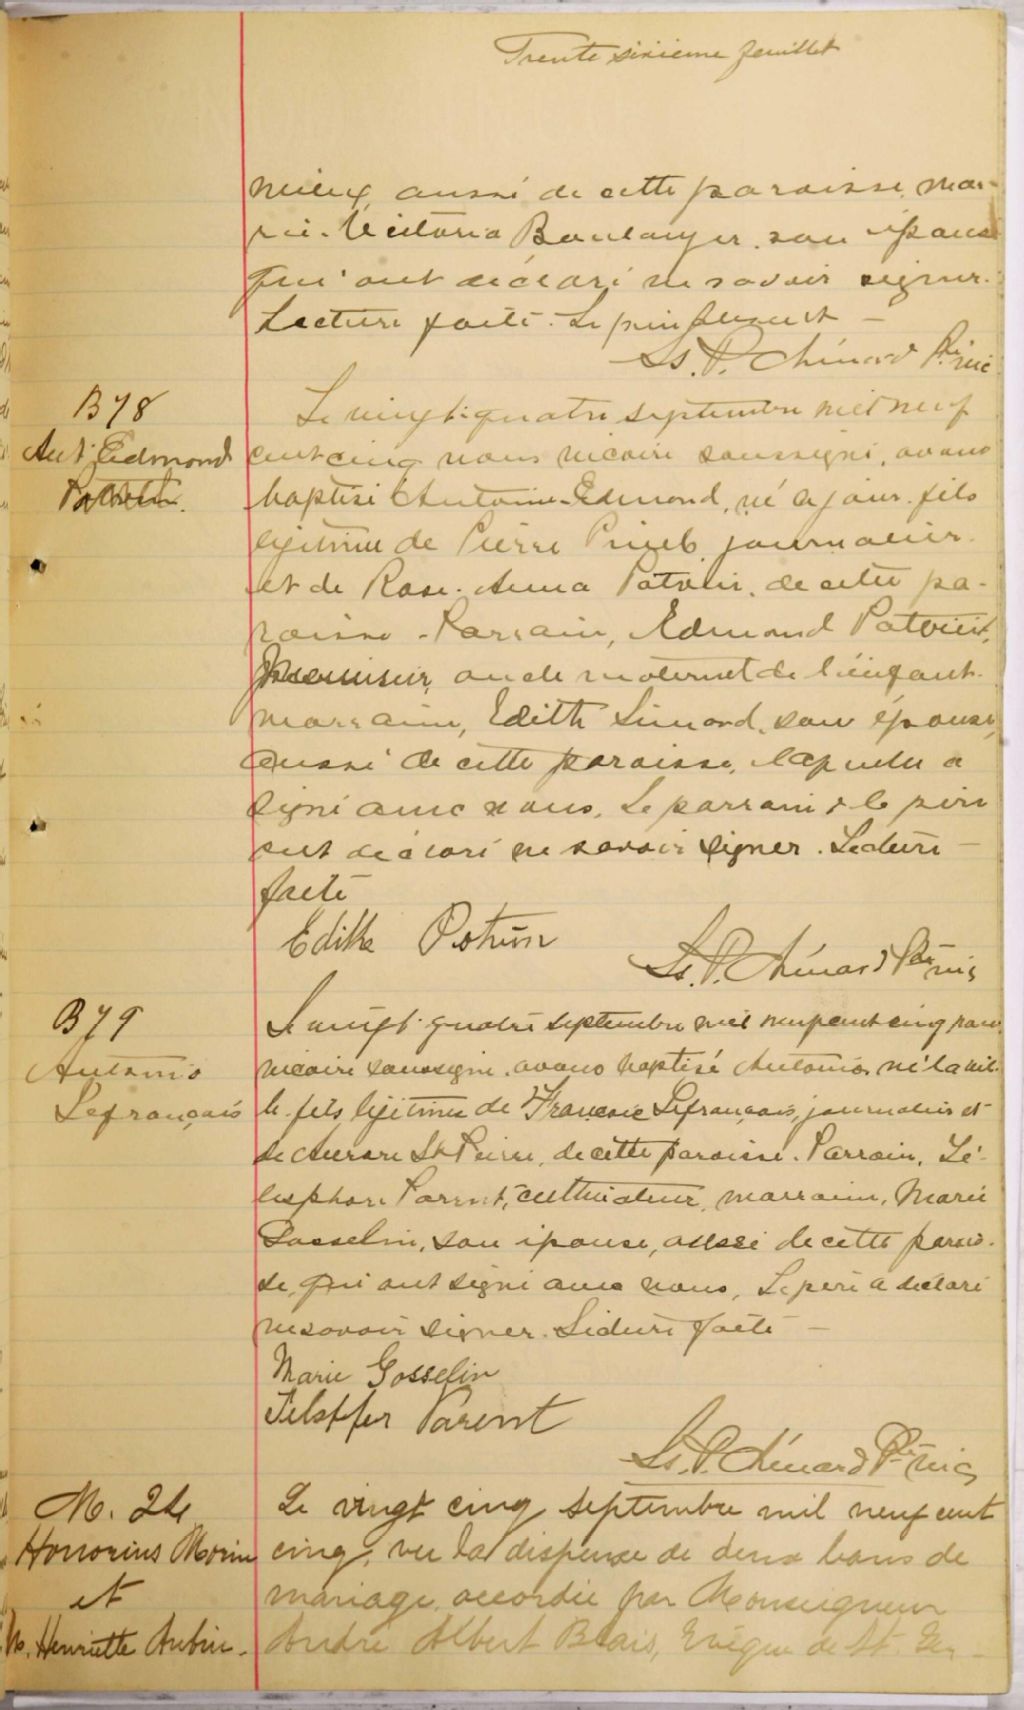 Trente sixieme feuillet
nieux, aussi de cette paroisse, mar-
rai. Victoria Boulanger son épouse
qui ont déclaré ne savoir signer.
Lecture faite. Le père présent —
Ls. P. Chénard Ptre vic
B 78
Ant. Edmond
Le vingt-quatre septembre mil neuf
cent cinq nous vicaire soussigné, avons
baptisé Antoine-Edmond, né ce jour, fils
légitime de Pierre journalier
et de Rose-Anna Potvin, de cette pa-
roisse. Parrain, Edmond Potvin,
menuisier, oncle maternel de l'enfant.
marraine, Edith Simard, son épouse,
aussi de cette paroisse, laquelle a
signé avec nous. Le parrain & le père
ont déclaré ne savoir signer. Lecture —
faite
Edith Potvin
Ls. P. Chénard Ptre vic
B 79
Antonio
Lefrançais
Le vingt-quatre septembre mil neuf cent cinq nous
vicaire soussigné, avons baptisé Antonio, né la veil-
le, fils légitime de François Lefrançais, journalier et
de Aurore St Pierre, de cette paroisse. Parrain, Té-
lesphore Parent, cultivateur, marraine, Marie
Gosselin, son épouse, aussi de cette parois-
se, qui ont signé avec nous. Le père a déclaré
ne savoir signer. Lecture faite —
Marie Gosselin
Telsffer Parent
Ls. P. Chénard Ptre vic
M. 24
Honorius Morin
et
M. Henriette Aubin.
Le vingt cinq septembre mil neuf cent
cinq, vu la dispense de deux bans de
mariage accordée par Monseigneur
André Albert Blais, Evêque de St. Ger-